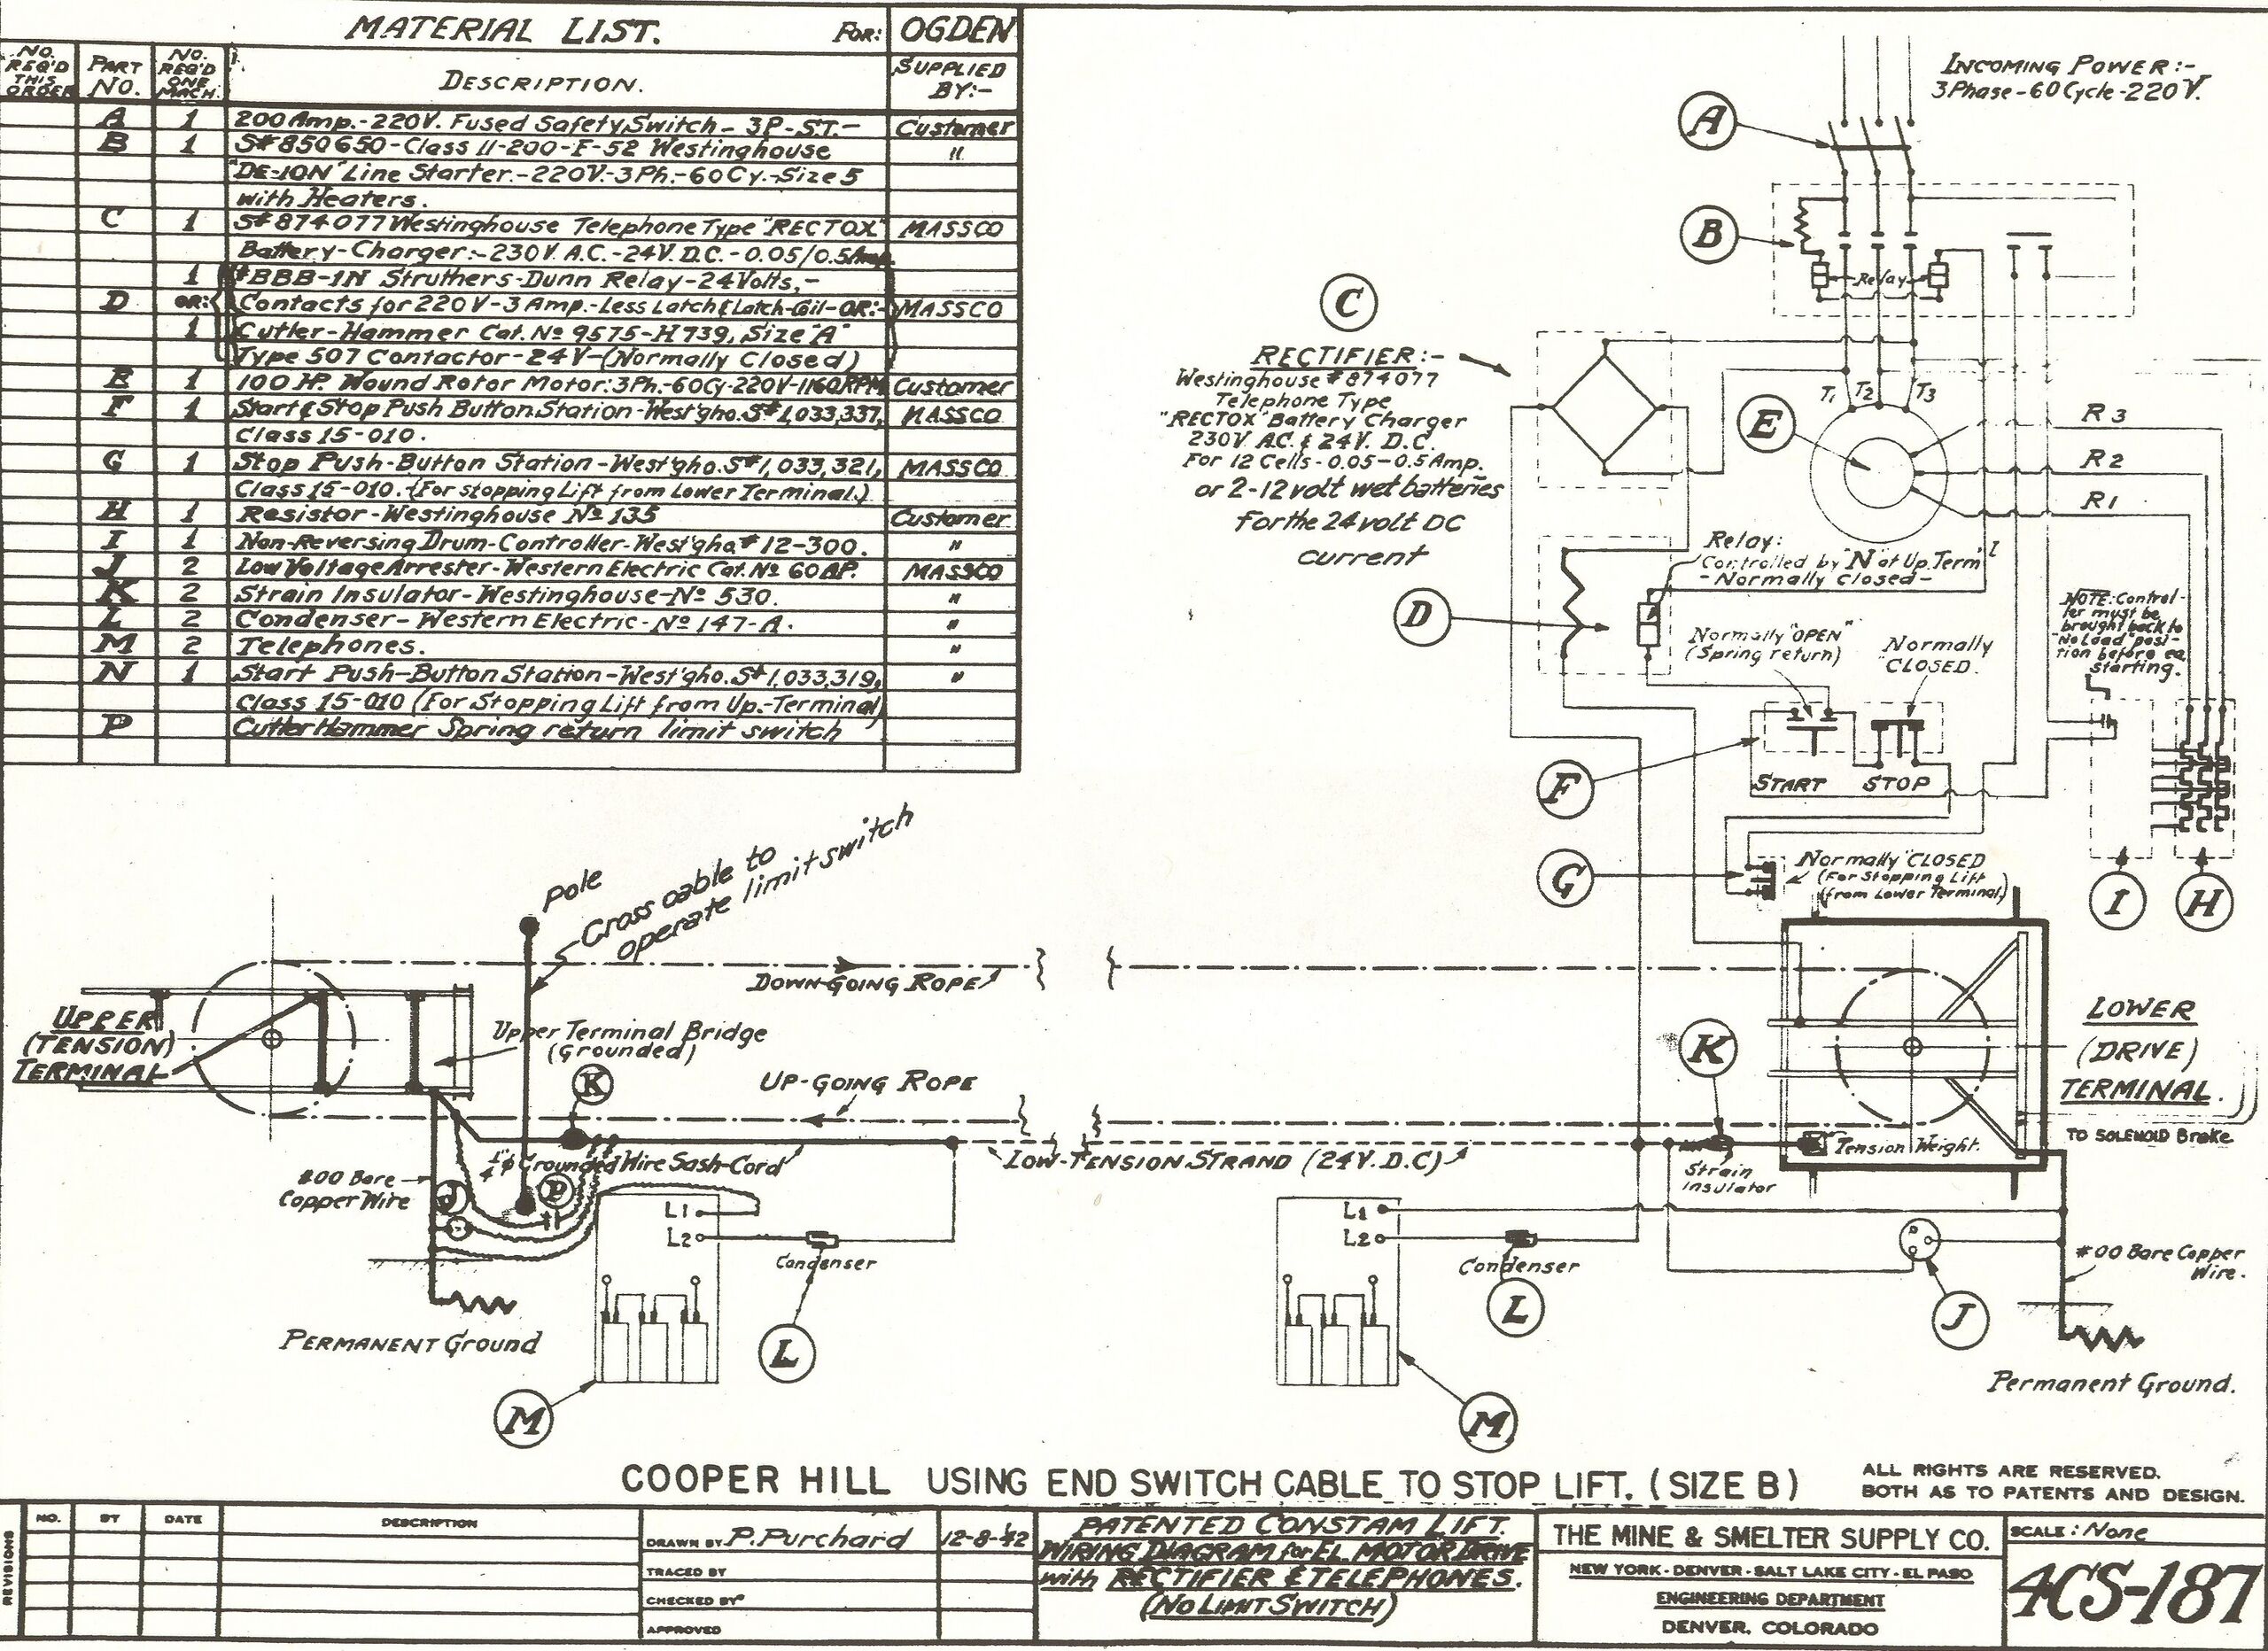 MATERIAL LIST. FOR: OGDEN
NO. REQ'D THIS ORDER
PART NO.
NO. REQ'D ONE MACH.
DESCRIPTION.
SUPPLIED BY:-
A 1 200 Amp.-220V. Fused Safety Switch - 3P-S.T.- Customer
B 1 S#850650-Class 11-200-F-52 Westinghouse "
"DE-ION" Line Starter.-220V.-3Ph.-60Cy.-Size 5
with Heaters.
C 1 S#874077 Westinghouse Telephone Type "RECTOX" MASSCO
Battery-Charger:-230V. A.C.-24V. D.C.-0.05/0.5 Amp.
1 #BBB-1N Struthers-Dunn Relay-24Volts,-
D OR: Contacts for 220V-3 Amp.-Less Latch & Latch-Coil-OR:- MASSCO
1 Cutler-Hammer Cat. No 9575-H739, Size "A"
Type 507 Contactor-24V-(Normally Closed)
E 1 100 HP. Wound Rotor Motor:3Ph.-60Cy-220V-1160RPM Customer
F 1 Start & Stop Push Button Station-West'gho. S#1,033,337, MASSCO
Class 15-010.
G 1 Stop Push-Button Station-West'gho. S#1,033,321, MASSCO
Class 15-010. (For stopping Lift from Lower Terminal.)
H 1 Resistor-Westinghouse No 135 Customer
I 1 Non-Reversing Drum-Controller-West'gho.#12-300. "
J 2 Low Voltage Arrester-Western Electric Cat. No 60AP. MASSCO
K 2 Strain Insulator-Westinghouse-No 530. "
L 2 Condenser-Western Electric-No 147-A. "
M 2 Telephones. "
N 1 Start Push-Button Station-West'gho. S#1,033,319, "
Class 15-010 (For Stopping Lift from Up.-Terminal)
P Cutler Hammer Spring return limit switch
INCOMING POWER:-
3Phase-60Cycle-220V.
A
B
Relay
C
RECTIFIER:-
Westinghouse #874077
Telephone Type
"RECTOX" Battery Charger
230V A.C. & 24V. D.C.
For 12 Cells-0.05-0.5 Amp.
or 2-12 volt wet batteries
for the 24 volt DC
current
T1 T2 T3
E
R3
R2
R1
D
Relay:
Controlled by "N" at Up. Term'l
-Normally Closed-
Normally "OPEN"
(Spring return)
Normally
CLOSED.
NOTE: Control-
ler must be
brought back to
"No Load" posi-
tion before ea.
starting.
F
START STOP
G
Normally "CLOSED
(For Stopping Lift
from Lower Terminal)
I
H
pole
Cross cable to
operate limit switch
DOWN-GOING ROPE
UPPER
(TENSION)
TERMINAL
Upper Terminal Bridge
(Grounded)
K
UP-GOING ROPE
K
LOWER
(DRIVE)
TERMINAL.
TO SOLENOID Brake
1/4"ϕ Grounded Wire Sash-Cord
LOW-TENSION STRAND (24V. D.C)
Strain
Insulator
Tension Weight.
#00 Bare
Copper Wire
J
P
L1
L2
Condenser
L
PERMANENT Ground
M
L1
L2
Condenser
L
M
J
#00 Bare Copper
Wire.
Permanent Ground.
COOPER HILL USING END SWITCH CABLE TO STOP LIFT. (SIZE B)
ALL RIGHTS ARE RESERVED.
BOTH AS TO PATENTS AND DESIGN.
REVISIONS
NO. BY DATE DESCRIPTION
DRAWN BY P. Purchard 12-8-42
TRACED BY
CHECKED BY
APPROVED
PATENTED CONSTAM LIFT.
WIRING DIAGRAM for EL. MOTOR DRIVE
with RECTIFIER & TELEPHONES.
(NO LIMIT SWITCH)
THE MINE & SMELTER SUPPLY CO.
NEW YORK - DENVER - SALT LAKE CITY - EL PASO
ENGINEERING DEPARTMENT
DENVER, COLORADO
SCALE: None
4CS-187